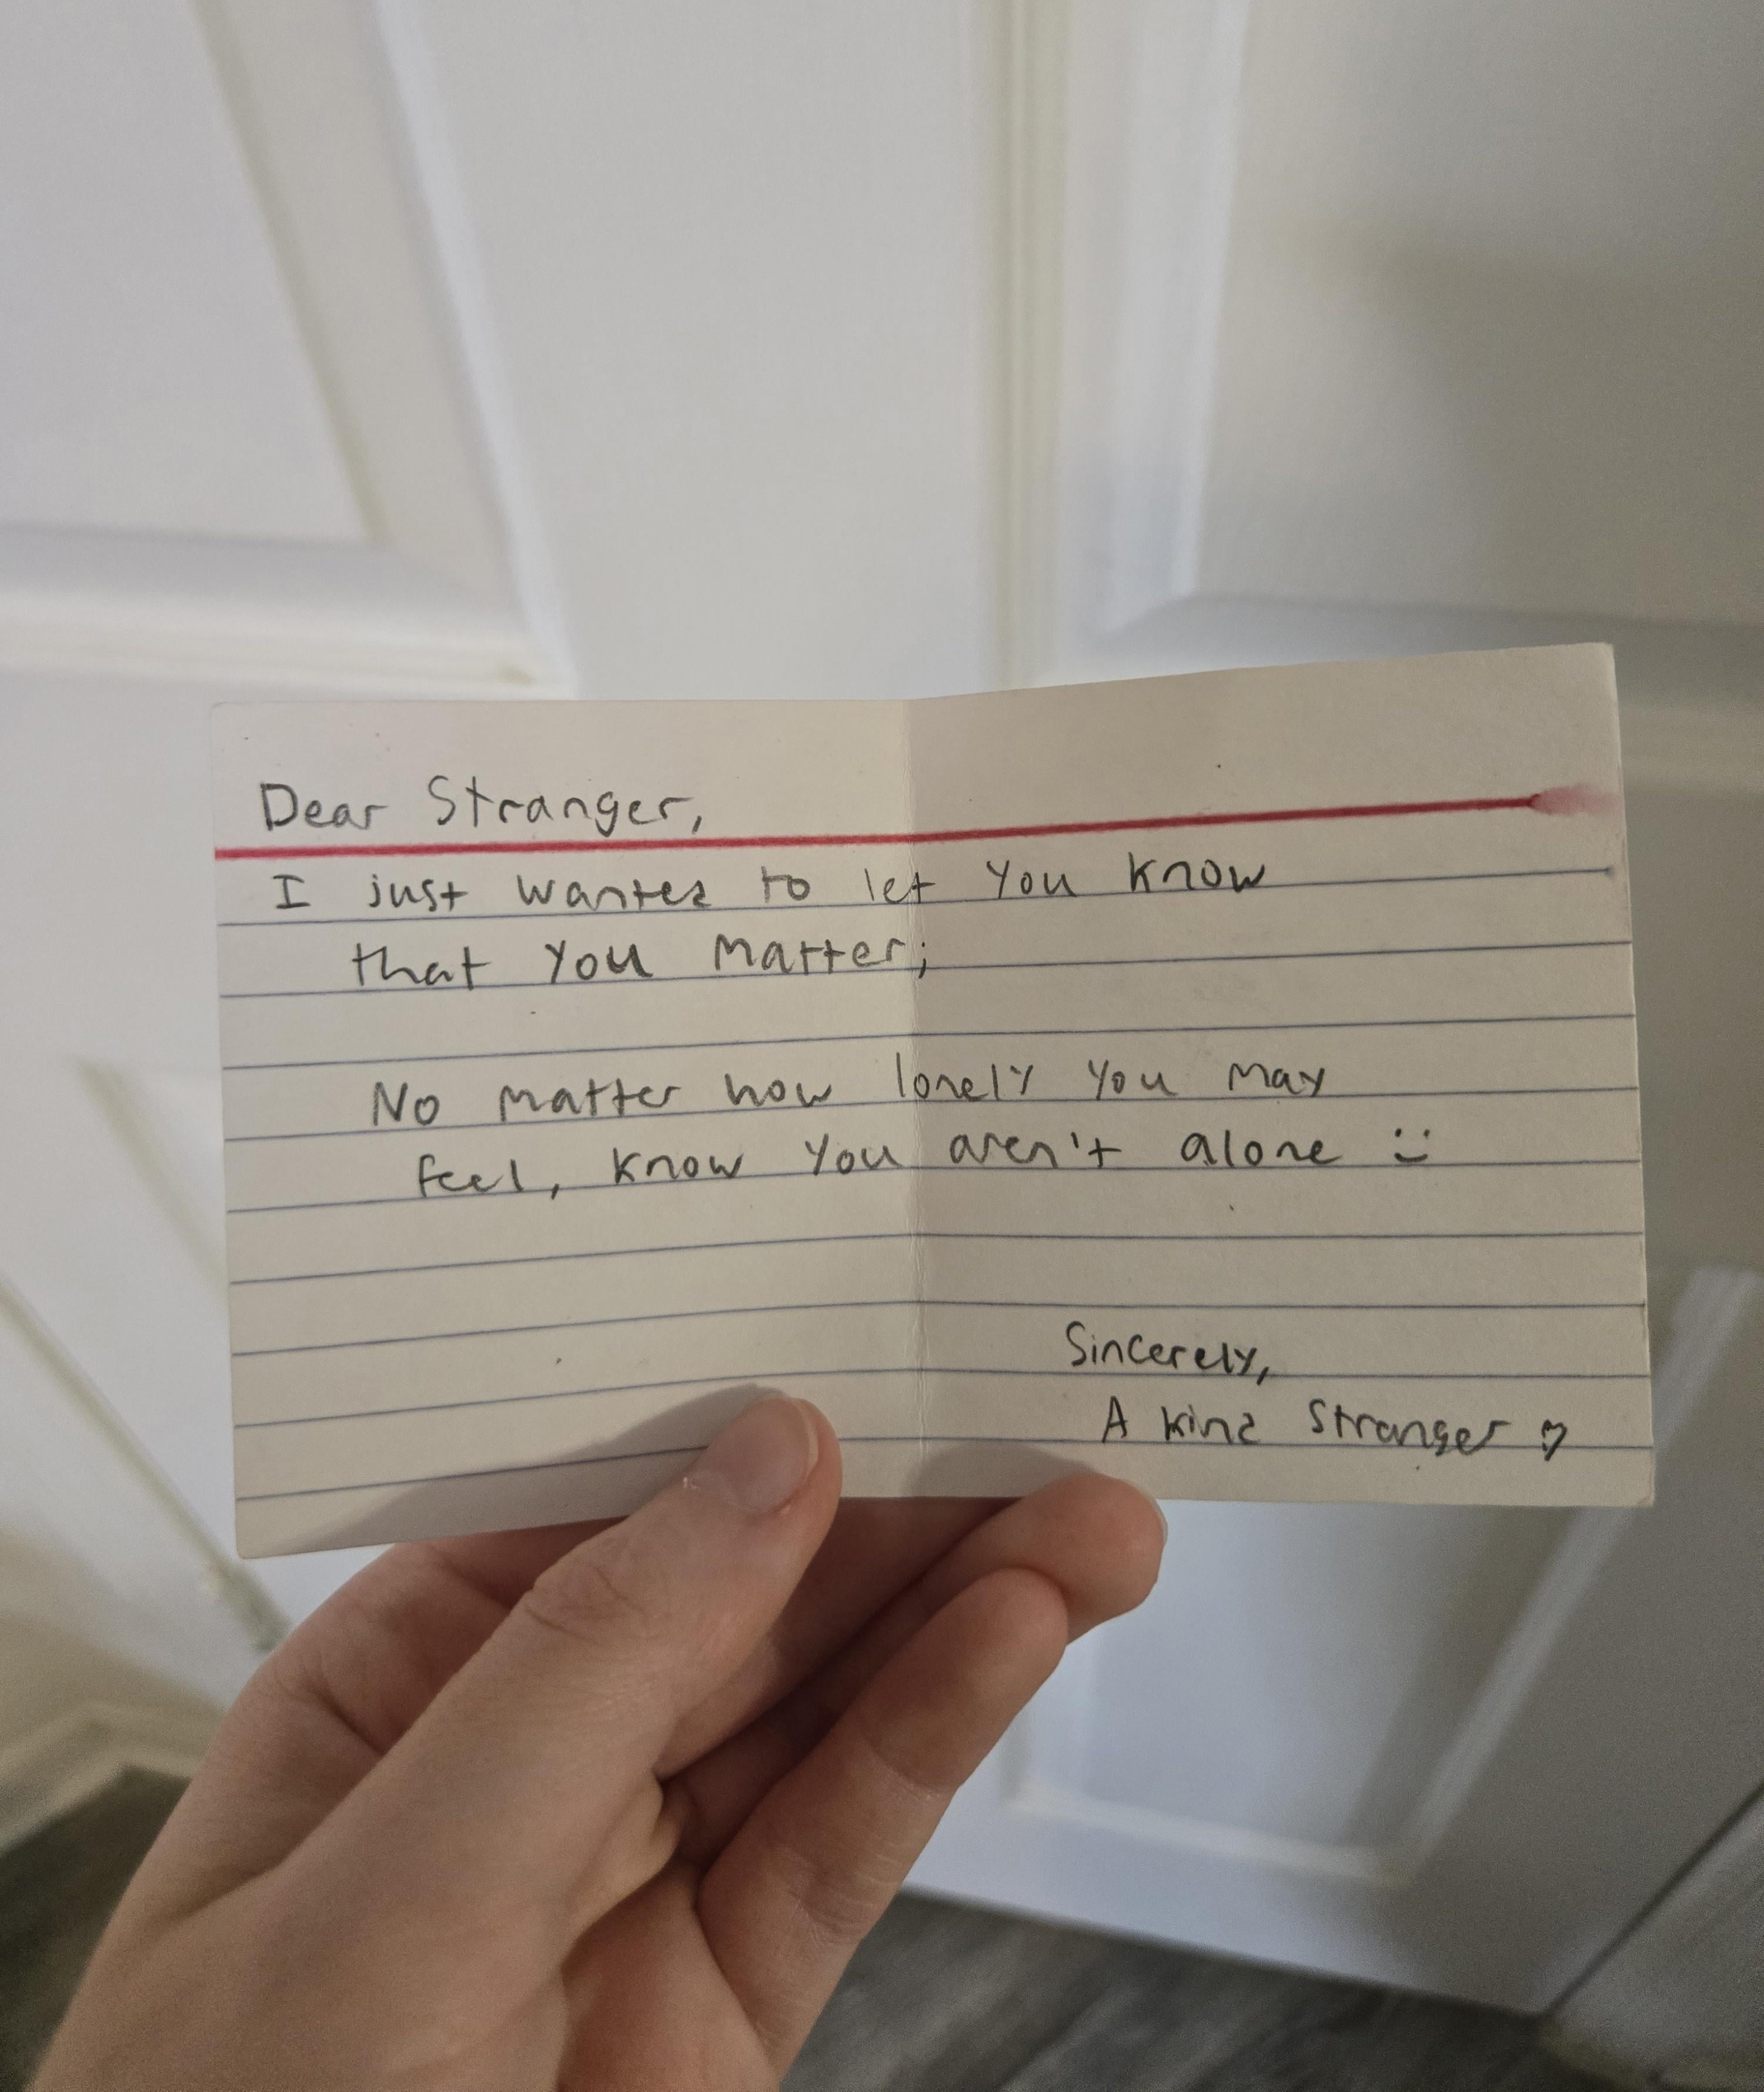 Dear Stranger,
I just wanted to let you know
that you matter;
No matter how lonely you may
feel, know you aren't alone :)
Sincerely,
A kind stranger ♡